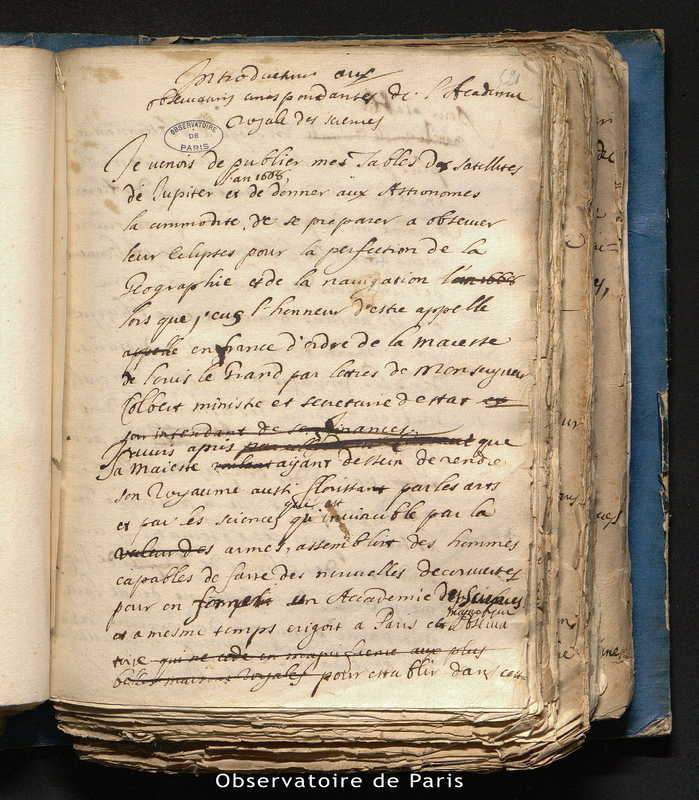 Introduction aux
observations correspondantes de l'Academie
Royale des sciences
621
OBSERVATOIRE
DE
PARIS
Je venois de publier mes Tables des satellites
l'an 1668,
de Jupiter et de donner aux Astronomes
la commodité de se preparer a observer
leur Eclipses pour la perfection de la
Geographie et de la navigation l'an 1668
lors que j'eus l'honneur d'estre appellé
appellé en france d'ordre de la maiesté
de Louis le Grand par letres de Monseigneur
Colbert ministre et secretaire d'estat et
son intendant de ses finances.
J'avois apris que
sa Maiesté voulant ayant dessein de rendre
son Royaume aussi florissant par les arts
et par les sciences qu'invincible par la
qui est
valeur des armes, assembloit des hommes
capables de faire des nouvelles decouvertes
pour en former un Accademie des Sciences
et a mesme temps erigoit a Paris et Observa
magnifique
toire qui ne cede en magnificence aux plus
belles maisons royales pour establir dans cet
Observatoire de Paris